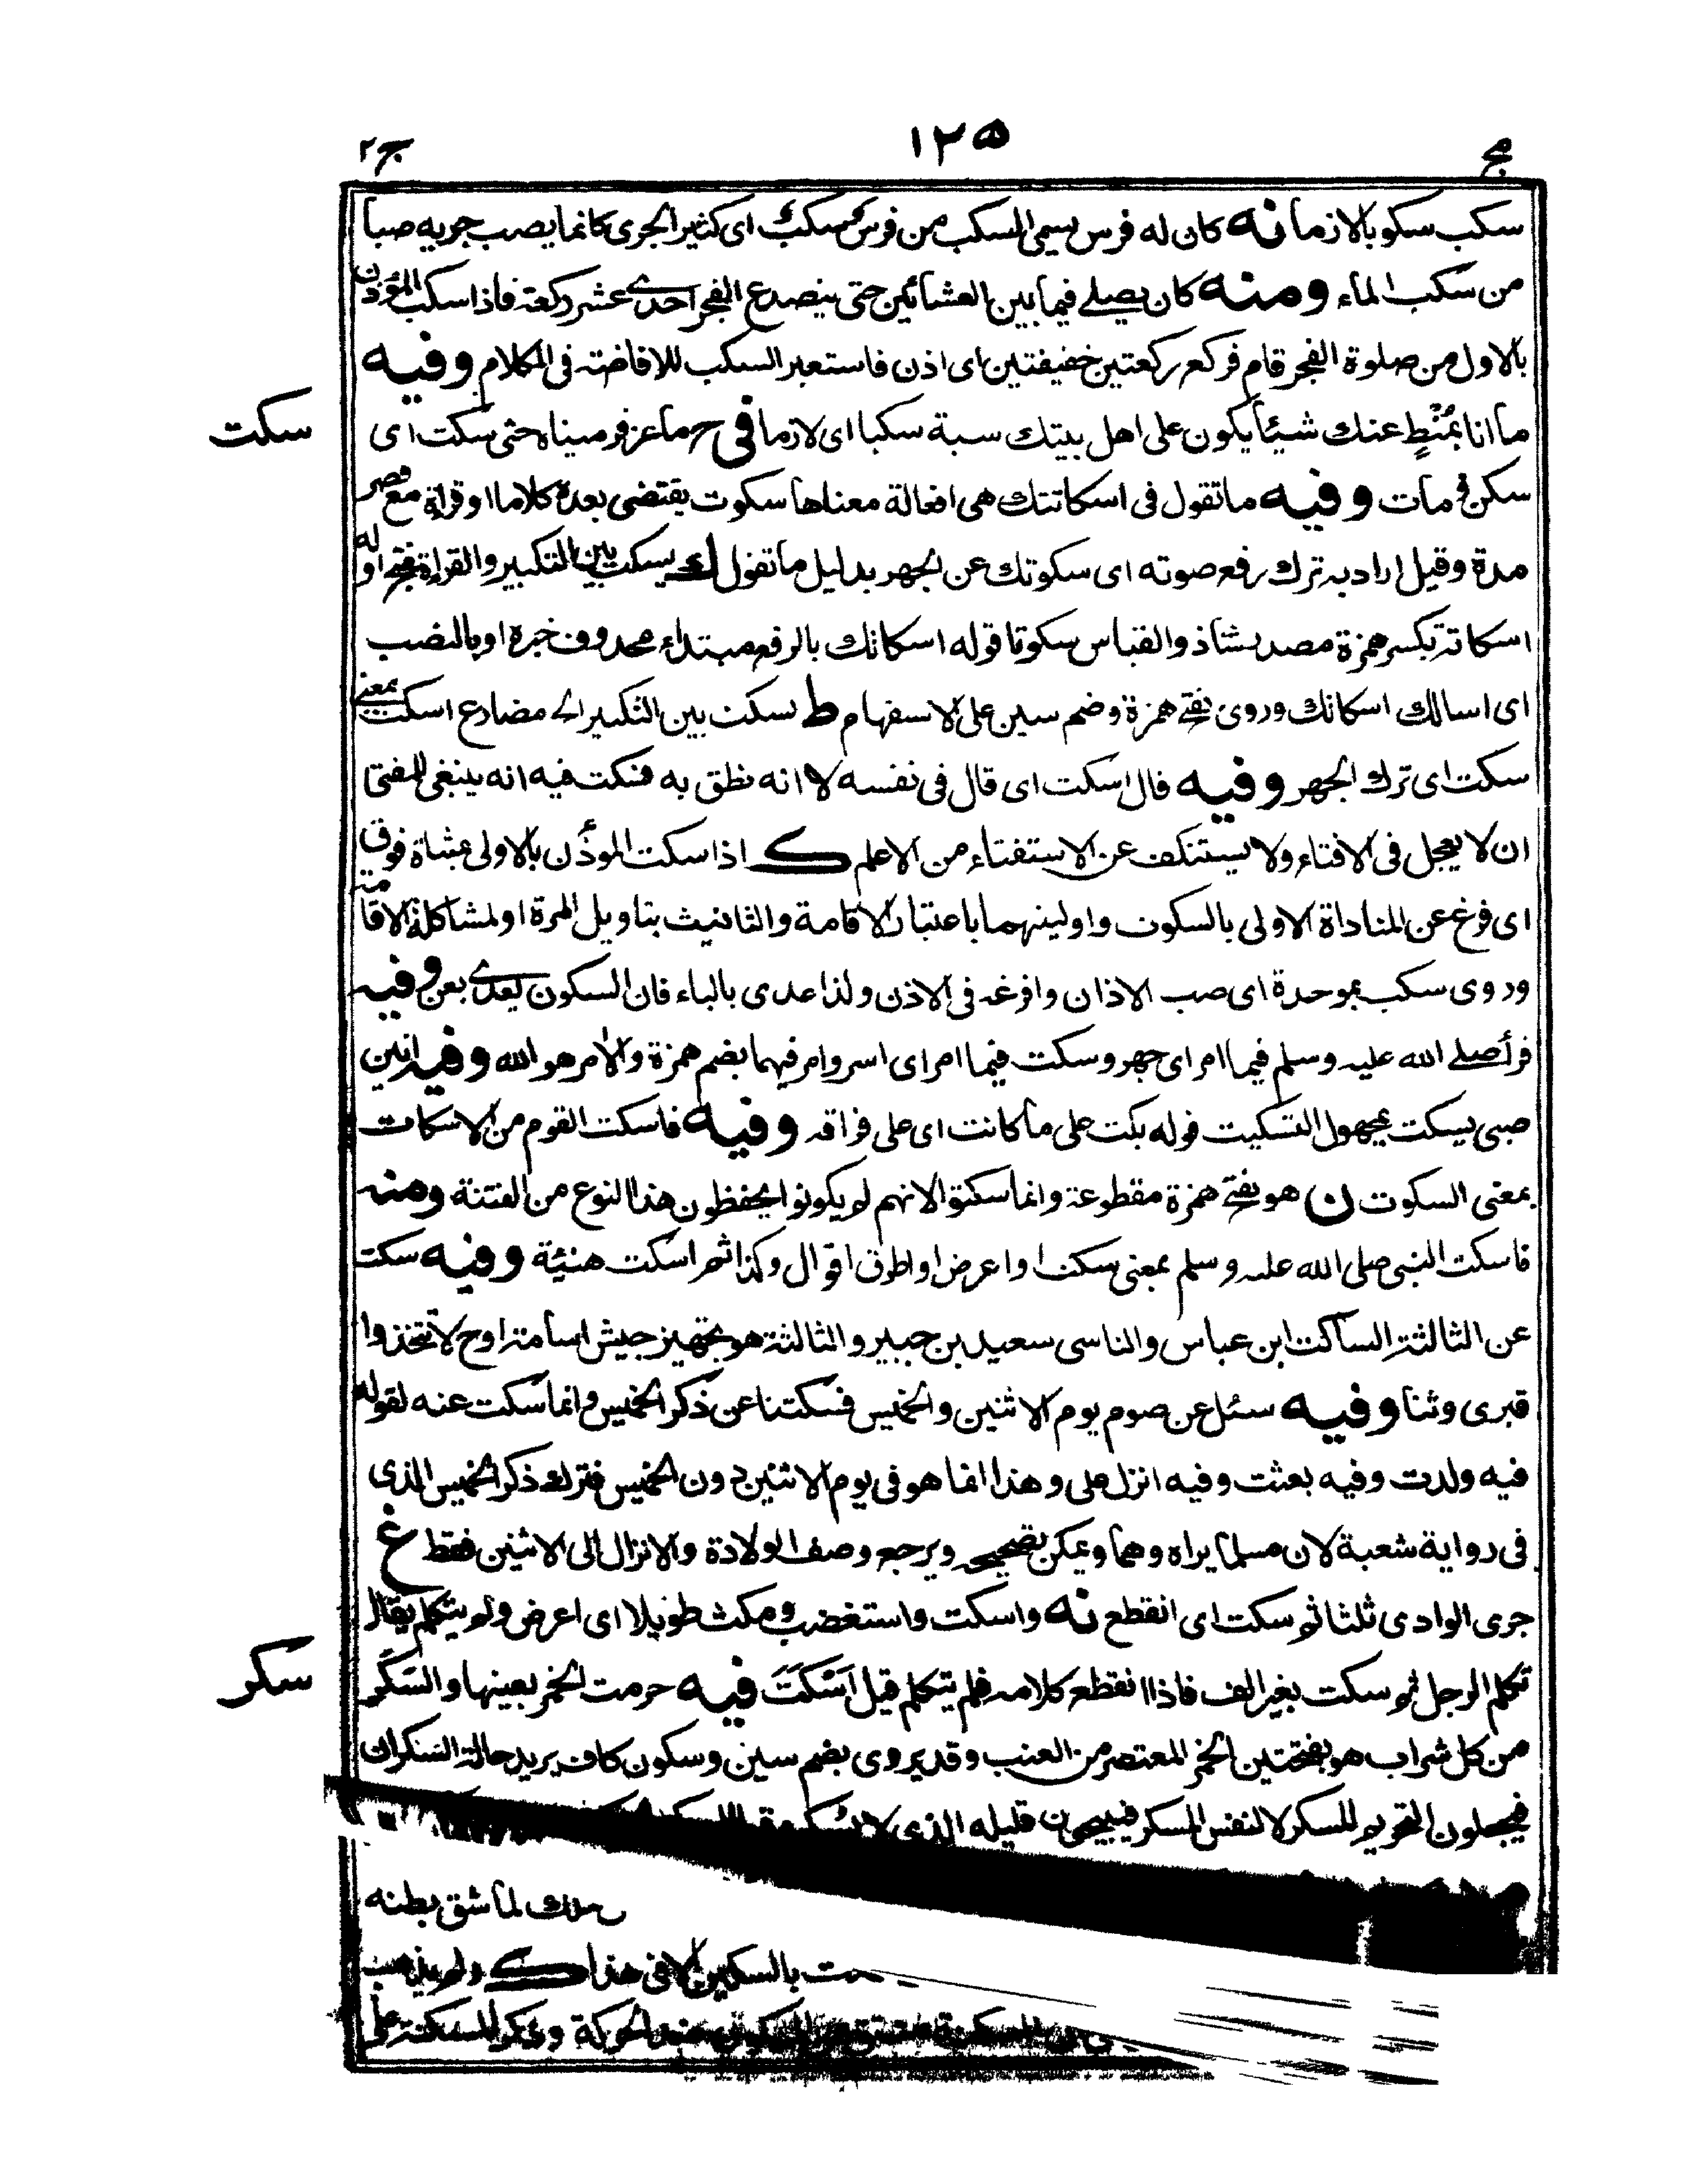 مج ١٢٥ ج٢
سكب سكوبا لازما نه كان له فرس يسمى السكب من فرس سكب اى كثير الجرى كانما يصب جريه صبا
من سكب الماء ومنه كان يصلے فيما بين العشائين حتى ينصدع الفجر احدے عشر ركعة فاذا سكب المؤذن
بالاول من صلوة الفجر قام فركع ركعتين خفيفتين اى اذن فاستعير السكب للافاضة فى الكلام وفيه
ما انا بمُنْطٍ عنك شيئا يكون على اهل بيتك سبة سكبا اى لازما فى ح ماعز فرميناه حتى سكت اى
سكت
سكن و مات وفيه ما تقول فى اسكاتتك هى افعالة معناها سكوت يقتضى بعده كلاما او قراءة مع قصر
مدة وقيل اراد به ترك رفع صوته اى سكوتك عن الجهر بدليل ما تقول ك يسكت بين التكبير والقراءة بفتح اوله
اسكاتة بكسر همزة مصدر شاذ والقياس سكوتا قوله اسكاتك بالرفع مبتداء محذوف خبره او بالنصب
اى اسالك اسكاتك وروى بفتح همزة وضم سين على الاستفهام ط يسكت بين التكبير اى مضارع اسكت بمعنى
سكت اى ترك الجهر وفيه قال اسكت اى قال فى نفسه لا انه نطق به فنكت فيه انه ينبغى للمفتى
ان لا يعجل فى الافتاء ولا يستنكف عن الاستفتاء من الاعلم ك اذا سكت الموذن بالاولى بمثناة فوق
اى فرغ عن المناداة الاولى بالسكوت واوليتهما باعتبار الاقامة والتانيث بتاويل المرة او لمشاكلة الاقامة
وروى سكب بموحدة اى صب الاذان وافرغه فى الاذن ولذا عدى بالباء فان السكون يعدے بعن وفيه
قرأ صلے الله عليه وسلم فيما امر اى جهر وسكت فيما امر اى اسر وامر فيهما بضم همزة والأمر هو الله وفيه انين
صبى يسكت بمجهول التسكيت قوله بكت على ما كانت اى على فراقه وفيه فاسكت القوم من الاسكات
بمعنى السكوت ن هو بفتح همزة مقطوعة وانما سكتوا لانهم لم يكونوا يحفظون هذا النوع من الفتنة ومنه
فاسكت النبى صلى الله عليه وسلم بمعنى سكت او اعرض او اطرق اقوال وكذا ثم اسكت هنيئة وفيه سكت
عن الثالثة الساكت ابن عباس والناسى سعيد بن جبير والثالثة هو تجهيز جيش اسامة او ح لا تتخذوا
قبرى وثنا وفيه سئل عن صوم يوم الاثنين والخميس فسكتنا عن ذكر الخميس وانما سكت عنه لقوله
فيه ولدت وفيه بعثت وفيه انزل على وهذا انما هو فى يوم الاثنين دون الخميس فترك ذكر الخميس الذى
فى رواية شعبة لان مسلما يراه وهما ويمكن تصحيحه ويرجع وصف الولادة والانزال الى الاثنين فقط غ
جرى الوادى ثلثا ثم سكت اى انقطع نه واسكت واستغضب ومكث طويلا اى اعرض ولم يتكلم يقال
تكلم الرجل ثم سكت بغير الف فاذا انقطع كلامه فلم يتكلم قيل اَسْكَتَ فيه حرمت الخمر بعينها والسَكَر
سكر
من كل شراب هو بفتحتين الخمر المعتصر من العنب وقد يروى بضم سين وسكون كاف يريد حالة السكران
فيجعلون التحريم للسكر لا لنفس المسكر فيبيحون قليله الذى لا يسكر
لما شق بطنه
بالسكين الا فى هذا ك
الحركة